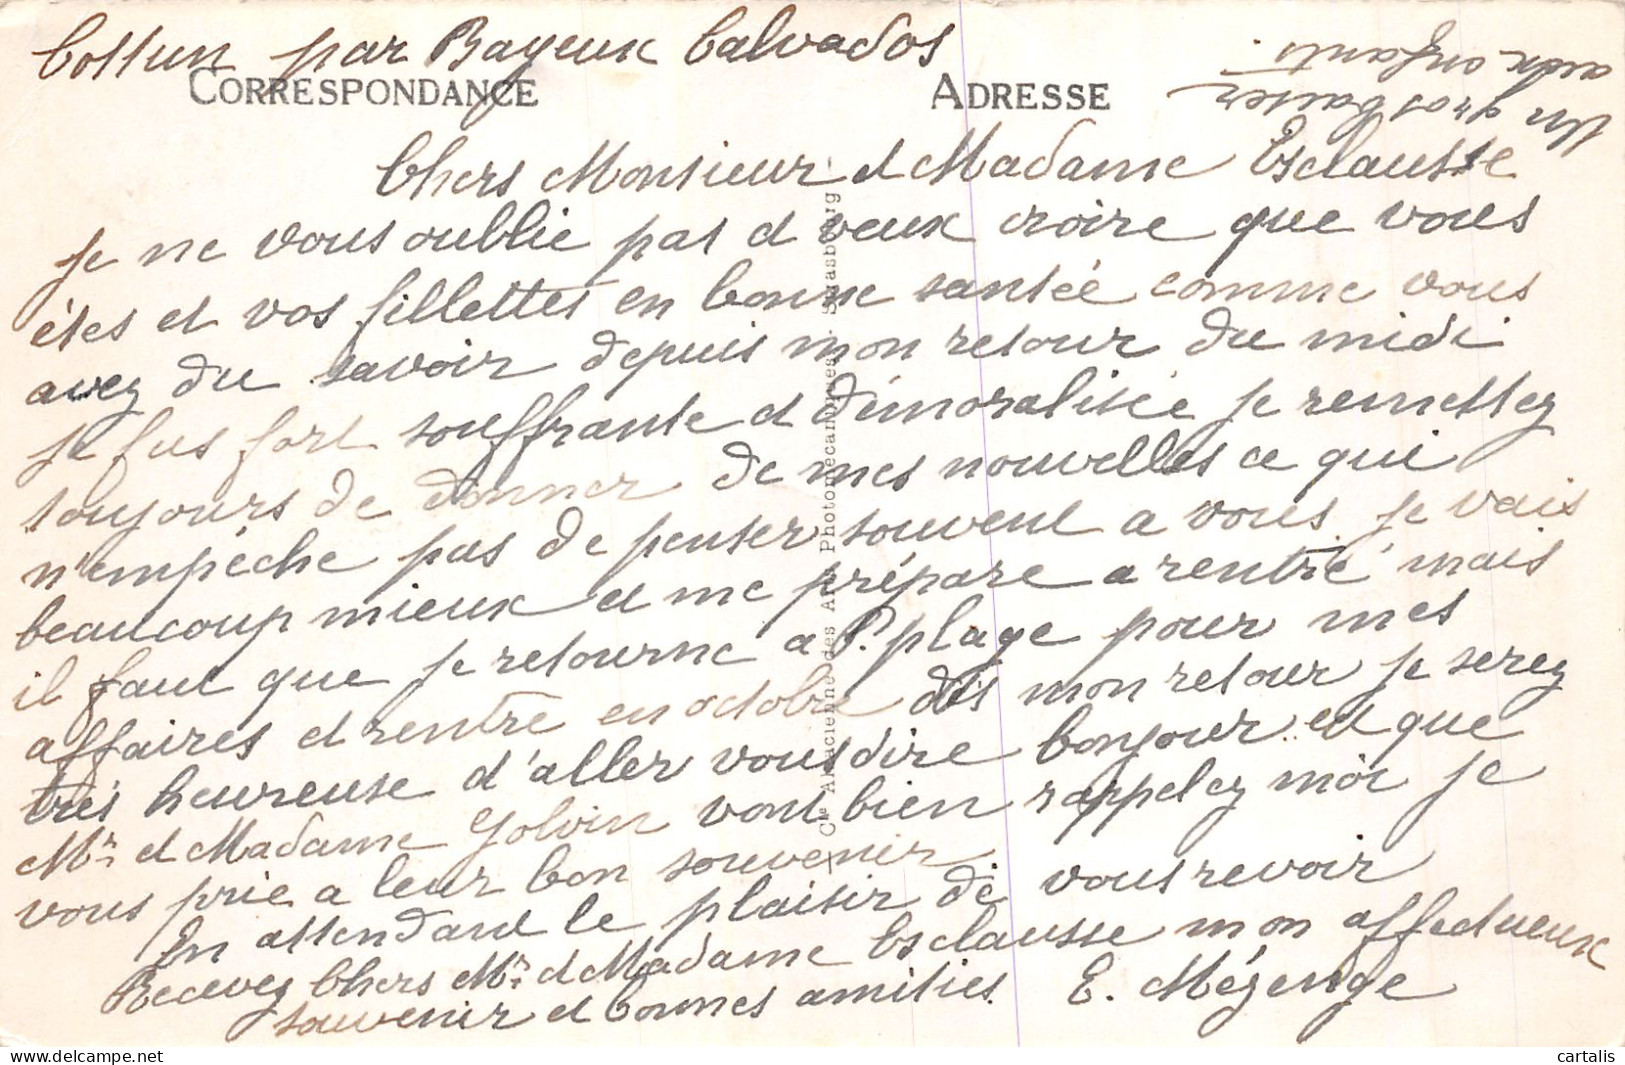 Cottun par Bayeux Calvados
CORRESPONDANCE
ADRESSE
Un gros baiser
aux enfants.
Chers Monsieur et Madame Esclausse
je ne vous oublie pas et veux croire que vous
êtes et vos fillettes en bonne santée comme vous
avez du savoir depuis mon retour du midi
je fus fort souffrante et démoralisée je remettez
toujours de donner de mes nouvelles ce qui
n'empêche pas de penser souvent a vous. je vais
beaucoup mieux et me prépare a rentré mais
il faut que je retourne a P. plage pour mes
affaires et rentre en octobre dès mon retour je serez
très heureuse d'aller vous dire bonjour et que
Mr. et Madame Golvin vont bien rappelez moi je
vous prie a leur bon souvenir
En attendant le plaisir de vous revoir
Recevez Chers Mr. et Madame Esclausse mon affectueux
souvenir et bonnes amitiés. E. Mézenge
Cie Alsacienne des Arts Photomécaniques - Strasbourg
cartalis